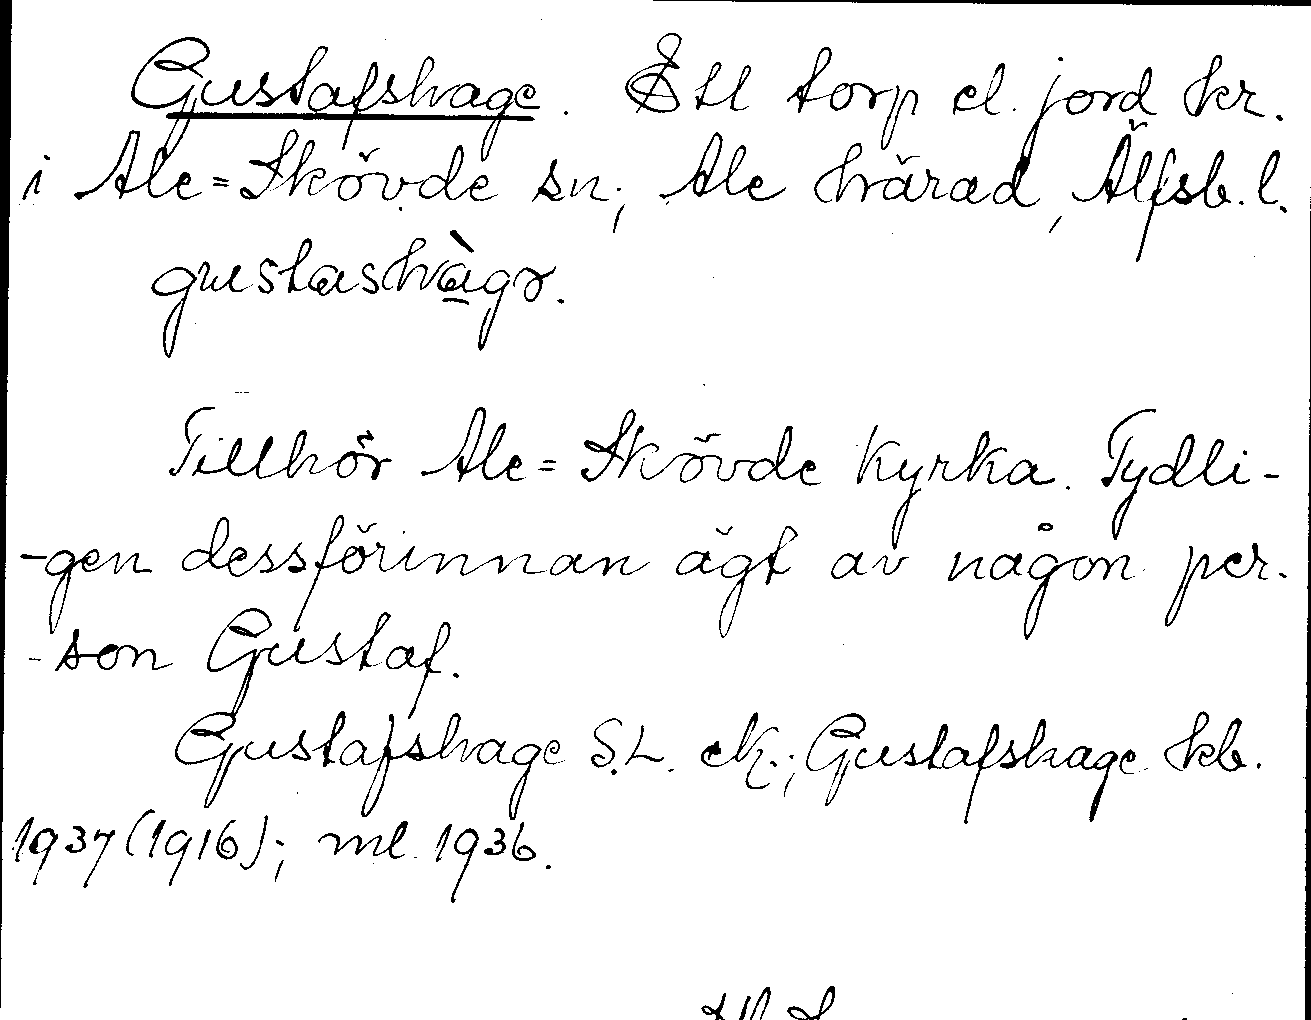 Gustafshage. Ett torp el. jord kr.
i Ale=Skövde sn; Ale härad, Älfsb. l.
gustashàgə.
Tillhör Ale=Skövde Kyrka. Tydli-
-gen dessförinnan ägt av någon per-
-son Gustaf.
Gustafshage S.L. ek.; Gustafshage skb.
1937 (1916); ml. 1936.